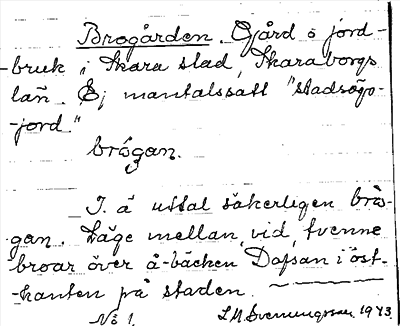 Brogården. Gård o jord-
-bruk i Skara stad, Skaraborgs
län. Ej mantalssatt "stadsägo-
-jord."
brógan.
I. ä uttal säkerligen brò-
gan. Läge mellan, vid, tvenne
broar över å-bäcken, Dofsan i öst-
-kanten på staden.
No 1. L.M. Svenungsson 1943